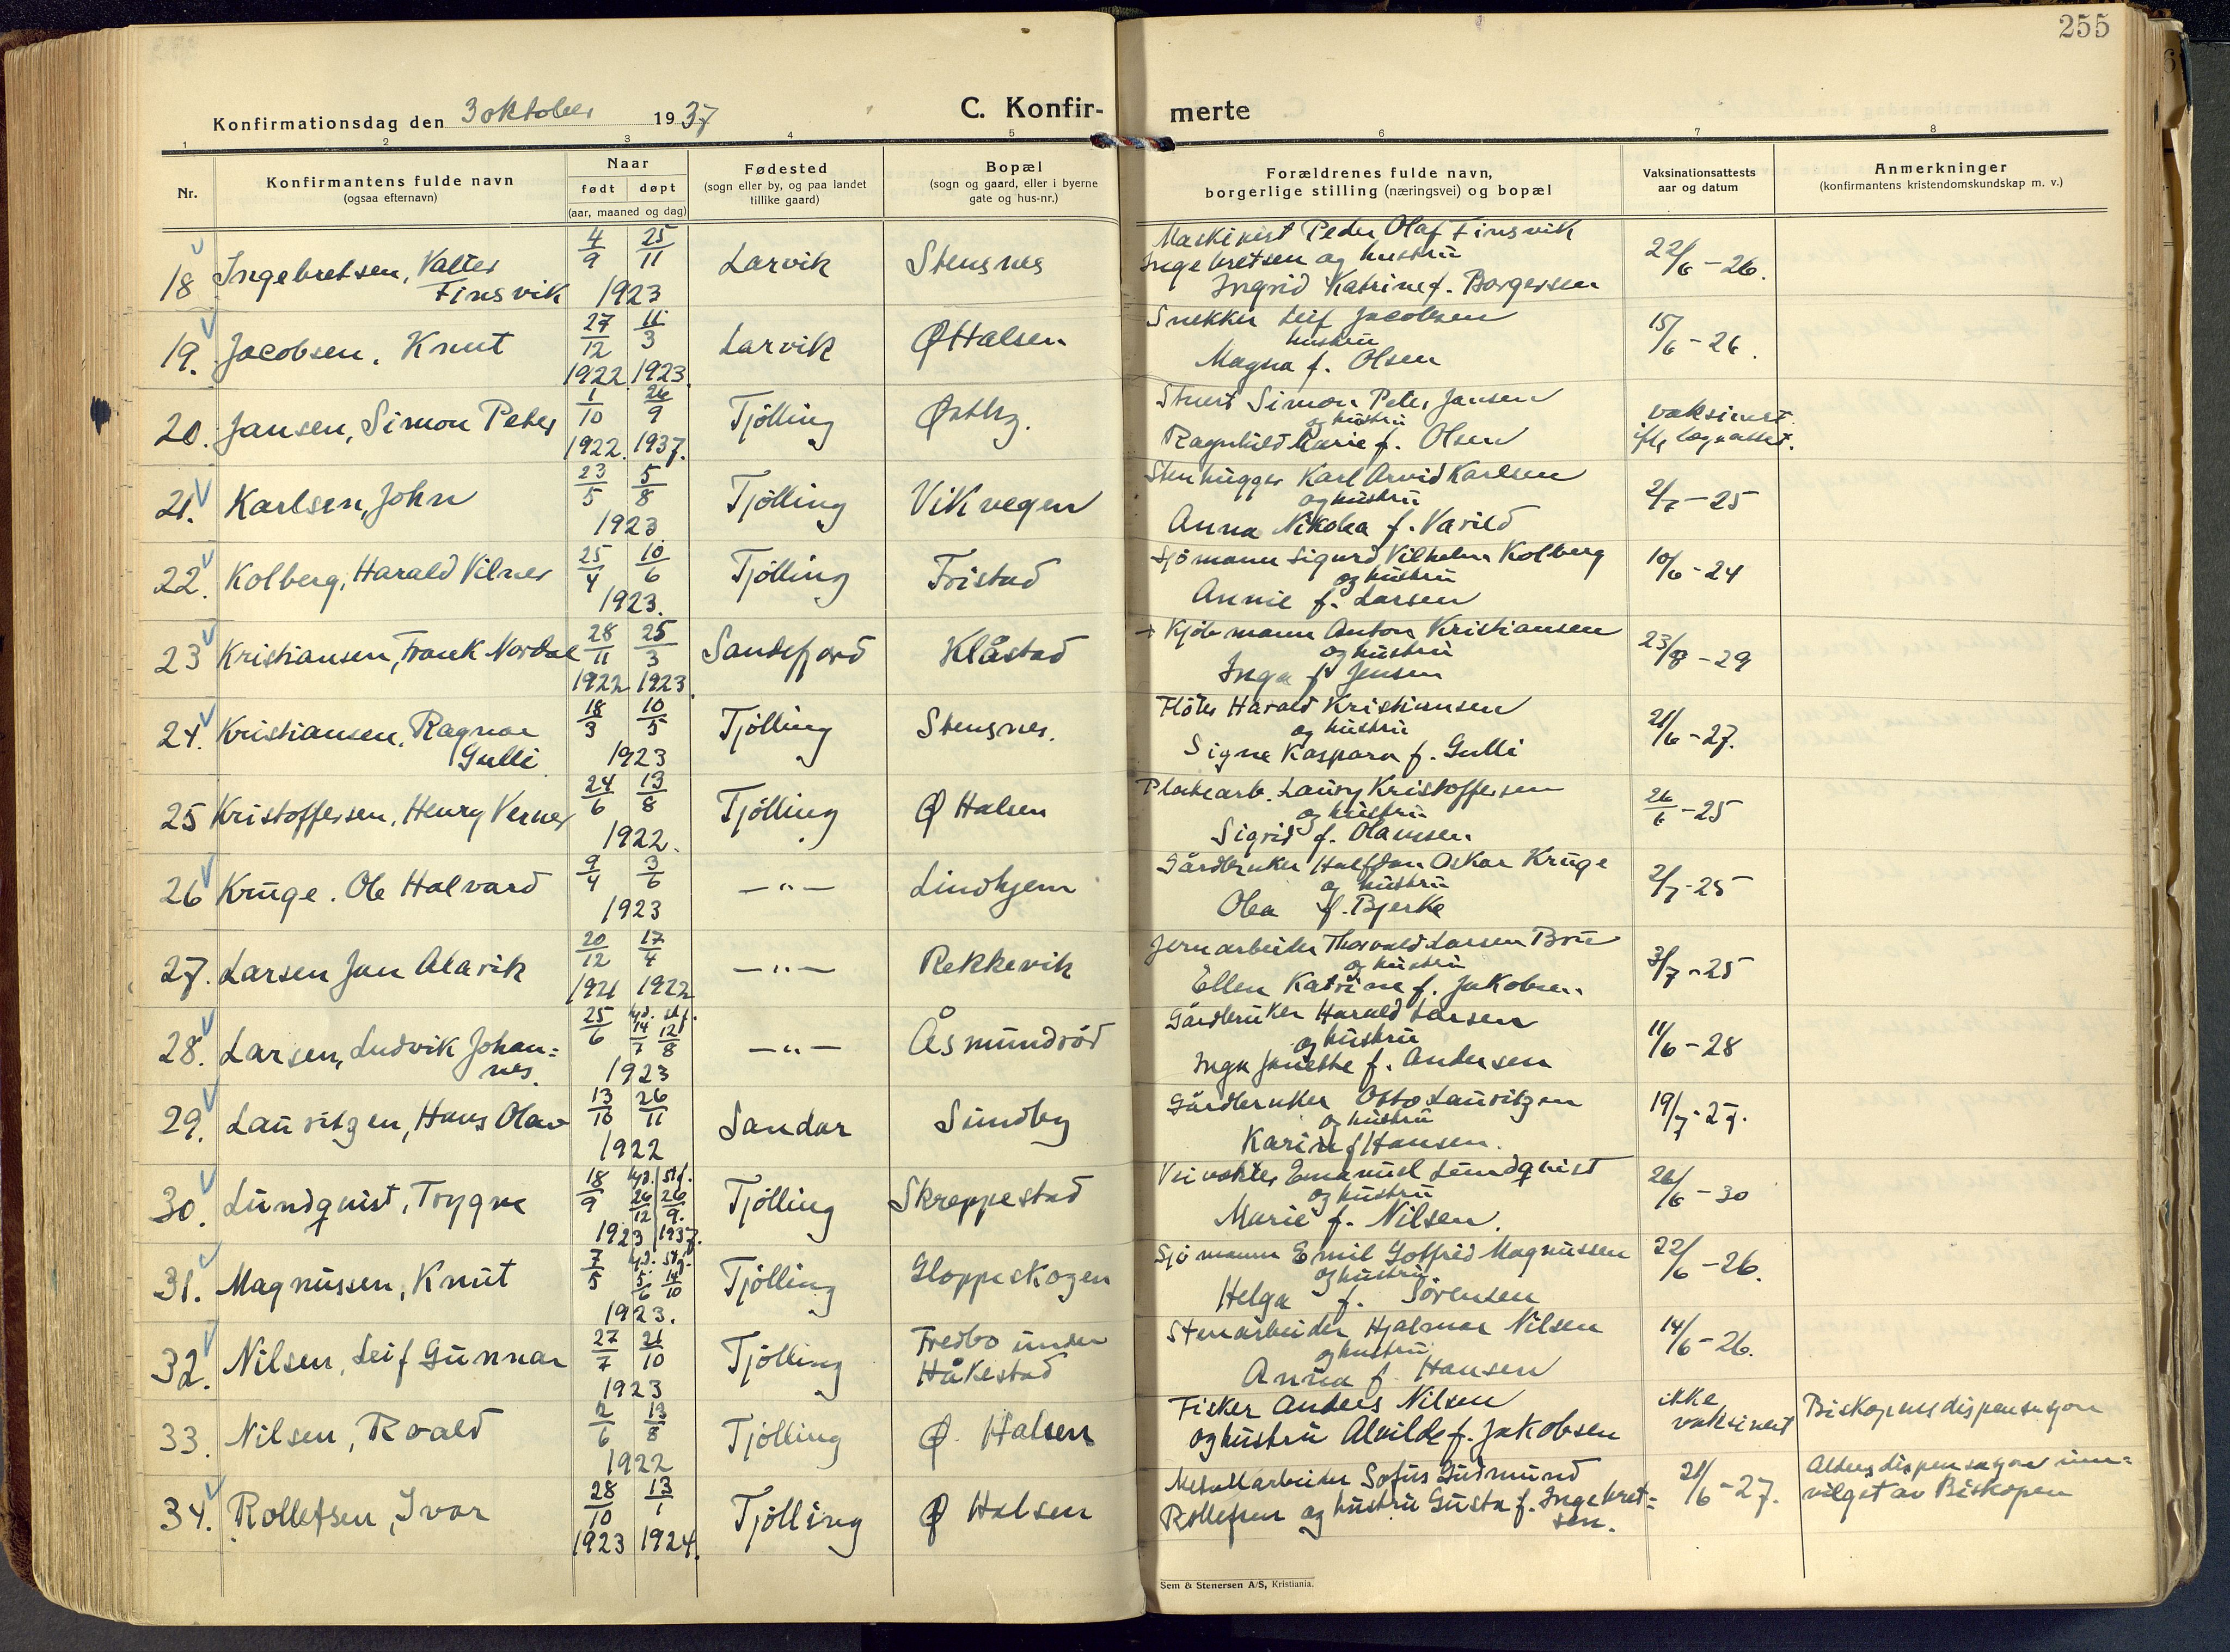 255
Konfirmationsdag den 3 oktober 1937
C. Konfir-
merte
1 2 3 4 5 6 7 8
Nr.
Konfirmantens fulde navn
(ogsaa efternavn)
Naar
født døpt
(aar, maaned og dag)
Fødested
(sogn eller by, og paa landet
tillike gaard)
Bopæl
(sogn og gaard, eller i byerne
gate og hus-nr.)
Forældrenes fulde navn,
borgerlige stilling (næringsvei) og bopæl
Vaksinationsattests
aar og datum
Anmerkninger
(konfirmantens kristendomskundskap m. v.)
18 Ingebretsen, Valter Finsvik 4/9 25/11 1923 Larvik Stensnes
Maskinist Peder Olaf Finsvik
Ingebretsen og hustru
Ingrid Katrine f. Borgersen
22/6 - 26.
19. Jacobsen, Knut 27/12 1922 11/3 1923. Larvik Ø Halsen
Snekker Leif Jacobsen
hustru
Magna f. Olsen
15/6 - 26.
20. Jansen, Simon Peter 1/10 1922. 26/9 1937. Tjölling Østby.
Stuert Simon Peter Jansen
og hustru
Ragnhild Marie f. Olsen
vaksinert
21. Karlsen, John 23/5 5/8 1923 Tjölling Vikvegen
Stenhugger Karl Arvid Karlsen
og hustru
Anna Nikolea f. Varild
2/7 - 25
22. Kolberg, Harald Vilner 25/4 10/6 1923. Tjölling Tristad
Sjömann Sigurd Vilhelm Kolberg
og hustru
Annie f. Larsen
10/6 - 24
23 Kristiansen, Frank Nordal 28/11 1922 25/3 1923 Sandefjord Klåstad
+ Kjöbmann Anton Kristiansen
og hustru
Inga f. Jensen
23/8 - 29
24. Kristiansen, Ragnar Gulli 18/3 10/5 1923 Tjölling Stensnes.
Fløter Harald Kristiansen
og hustru
Signe Kaspara f. Gulli
21/6 - 27.
25 Kristoffersen, Henry Verner 24/6 13/8 1922. Tjölling Ø Halsen
Platearb. Laury Kristoffersen
og hustru
Sigrid f. Olaussen
26/6 - 25
26 Kruge. Ole Halvard 9/4 3/6 1923 — " — Lindhjem
Gårdbruker Halfdan Oskar Kruge
og hustru
Olea f. Bjerke
2/7 - 25
27. Larsen Jan Alarik 20/12 1921 17/4 1922 — " — Rekkevik
Jernarbeider Thorvald Larsen Bru
og hustru
Ellen Katrine f. Jakobsen
3/7 - 25
28. Larsen, Ludvik Johan=
nes. 25/6 hjd. 14/7 stf. 12/8 1923 — " — Åsmundröd
Gårdbruker Harald Larsen
og hustru
Inga Janette f. Andersen
11/6 - 28
29. Lauritzen, Hans Olav 13/10 26/11 1922 Sandar Sundby
Gårdbruker Otto Lauritzen
og hustru
Karin f Hansen.
19/7 - 27.
30. Lundquist, Trygve 18/9 hjd. 26/12 1923 stf. 26/9. 1937. Tjölling Skreppestad
Veivokter Emanuel Lundquist
og hustru
Marie f. Nilsen.
26/6 - 30
31. Magnussen, Knut 7/5 hjd. 5/6 stf. 14/10 1923. Tjölling Gloppeskogen
Sjömann Emil Gotfred Magnussen
og hustru
Helga f. Sörensen
22/6 - 26.
32. Nilsen, Leif Gunnar 27/7 21/10 1923 Tjölling Fredbo under
Håkestad
Stenarbeider Hjalmar Nilsen
og hustru
Anna f. Hansen
14/6 - 26.
33. Nilsen, Roald 2/6 13/8 1922 Tjölling Ø. Halsen
Fisker Anders Nilsen
og hustru Alvilde f. Jakobsen
ikke
vaksinert
Biskopens dispensasjon
34. Rollefsen, Ivar 28/10 1923 13/1 1924. Tjölling Ø Halsen
Metallarbeider Sofus Gudmund
Rollefsen og hustru Gusta f. Ingebret=
sen.
21/6 - 27.
Aldersdispensasjon inn=
vilget av Biskopen
Sem & Stenersen A/S, Kristiania.